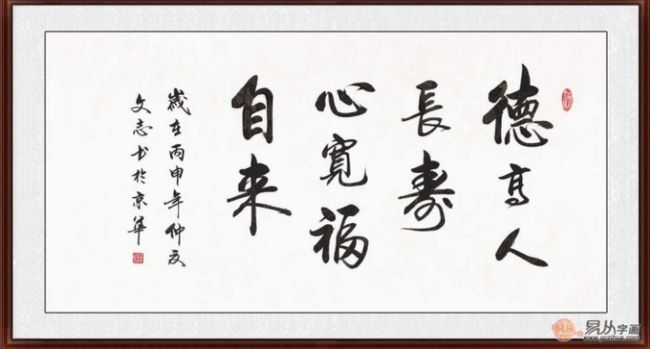 德高人
長壽
心寬福
自来
歲在丙申年仲夏
文志书於京華
易从字画
www.yczihua.com